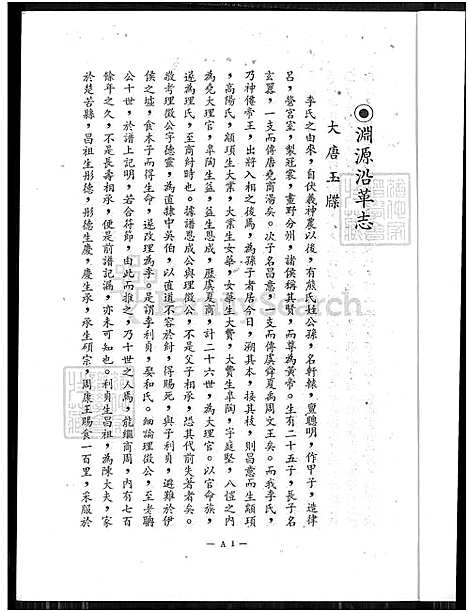 ◉淵源沿革志
大唐玉牒
李氏之由來，自伏羲神農以後，有熊氏姓公孫，名軒轅，質聰明，作甲子，造律
呂，營宮室，製冠裳，畫野分州，諸侯稱其賢，而尊為黃帝。生有二十五子，長子名
玄囂，一支而傳唐堯商湯矣。次子名昌意，一支而傳虞舜夏禹周文王矣。而我李氏，
乃神僊帝王，出將入相之後焉，為孫子者居今日，溯其本，接其枝，則昌意而生顓頊
，高陽氏，顓頊生大業，大業生女華，女華生大費，大費生皐陶，字庭堅，八愷之內
為堯大理官，皐陶生益，益生恩成，歷虞夏商，計二十六世，為大理官。以官命族，
遂為理氏，至商紂時也。據譜恩成公與理徵公，不是父子相承，恐其代前失著者矣。
敬考理徵公字德靈，為直隸中吳伯，以直道不容於紂，得賜死，與子利貞，避難於伊
侯之墟，食木子而得生命，遂改理為李。是謂李利貞，娶和氏。細論理徵公，至老聃
公十世，於譜上記明，若合符節，由此而推之，乃十世之人焉，能繼商周，內有七百
餘年之久，不是長壽相承，便是前譜記漏，亦未可知也。利貞生昌祖，為陳大夫，家
於楚苦縣，昌祖生彤德，彤德生慶，慶生承，承生碩宗，周康王賜食一百里，采服於
— A 1 —